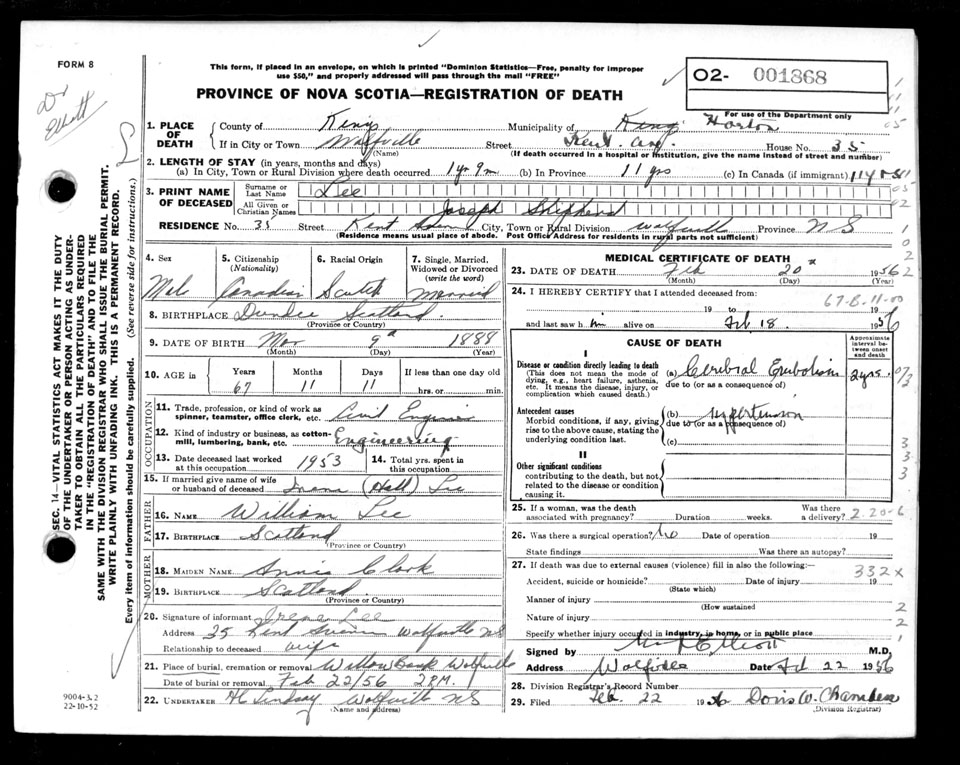 FORM 8
Dr
Elliott
This form, if placed in an envelope, on which is printed "Dominion Statistics—Free, penalty for improper
use $50," and properly addressed will pass through the mail "FREE"
O2- 001868
PROVINCE OF NOVA SCOTIA—REGISTRATION OF DEATH
For use of the Department only
1. PLACE OF DEATH
County of Kings Municipality of Kings Horton
If in City or Town Wolfville Street Kent Ave. House No. 35
(Name) (If death occurred in a hospital or institution, give the name instead of street and number)
2. LENGTH OF STAY (in years, months and days)
(a) In City, Town or Rural Division where death occurred 1 yr 9 m (b) In Province 11 yrs (c) In Canada (if immigrant)
3. PRINT NAME OF DECEASED
Surname or Last Name Lee
All Given or Christian Names Joseph Shepherd
RESIDENCE No. 35 Street Kent City, Town or Rural Division Wolfville Province N S
(Residence means usual place of abode. Post Office Address for residents in rural parts not sufficient)
4. Sex Male
5. Citizenship (Nationality) Canadian
6. Racial Origin Scotch
7. Single, Married, Widowed or Divorced (write the word) Married
8. BIRTHPLACE Dundee Scotland
(Province or Country)
9. DATE OF BIRTH Mar 9th 1888
(Month) (Day) (Year)
10. AGE in Years Months Days If less than one day old
67 11 11 hrs. or min.
OCCUPATION
11. Trade, profession, or kind of work as spinner, teamster, office clerk, etc. Civil Engineer
12. Kind of industry or business, as cotton-mill, lumbering, bank, etc. Engineering
13. Date deceased last worked at this occupation 1953
14. Total yrs. spent in this occupation
15. If married give name of wife or husband of deceased Irene (Hall) Lee
FATHER
16. NAME William Lee
17. BIRTHPLACE Scotland
(Province or Country)
MOTHER
18. MAIDEN NAME Annie Clark
19. BIRTHPLACE Scotland
(Province or Country)
20. Signature of informant Irene Lee
Address 35 Kent Avenue Wolfville NS
Relationship to deceased wife
21. Place of burial, cremation or removal Willow Bank Wolfville
Date of burial or removal Feb 22/56 2 P.M.
22. UNDERTAKER Lindsay Wolfville NS
(Name and address)
MEDICAL CERTIFICATE OF DEATH
23. DATE OF DEATH Feb 20th 1956
(Month) (Day) (Year)
24. I HEREBY CERTIFY that I attended deceased from:
67-8-11-00
19 to 19
and last saw him alive on Feb 18. 1956
CAUSE OF DEATH
Approximate interval between onset and death
I
Disease or condition directly leading to death
(This does not mean the mode of dying, e.g., heart failure, asthenia, etc. It means the disease, injury, or complication which caused death.)
(a) Cerebral Embolism 2 yrs.
due to (or as a consequence of)
Antecedent causes
Morbid conditions, if any, giving rise to the above cause, stating the underlying condition last.
(b) Hypertension
due to (or as a consequence of)
(c)
II
Other significant conditions
contributing to the death, but not related to the disease or condition causing it.
25. If a woman, was the death associated with pregnancy? Duration weeks. Was there a delivery?
2-20-6
26. Was there a surgical operation? No Date of operation 19
State findings Was there an autopsy?
27. If death was due to external causes (violence) fill in also the following: 332x
Accident, suicide or homicide? Date of injury 19
(State which)
Manner of injury
(How sustained
Nature of injury
Specify whether injury occurred in industry, in home, or in public place
Signed by Elliott M.D.
Address Wolfville Date Feb 22 1956
28. Division Registrar's Record Number
29. Filed Feb. 22 1956 Doris W. Chambers
(Division Registrar)
SEC. 14—VITAL STATISTICS ACT MAKES IT THE DUTY
OF THE UNDERTAKER OR PERSON ACTING AS UNDER-
TAKER TO OBTAIN ALL THE PARTICULARS REQUIRED
IN THE "REGISTRATION OF DEATH" AND TO FILE THE
SAME WITH THE DIVISION REGISTRAR WHO SHALL ISSUE THE BURIAL PERMIT.
WRITE PLAINLY WITH UNFADING INK. THIS IS A PERMANENT RECORD.
Every item of information should be carefully supplied. (See reverse side for instructions.)
9004-3.2
22-10-52